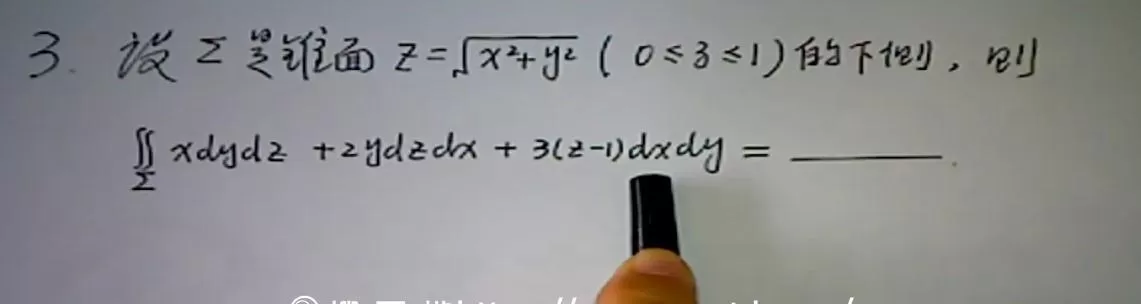 3. 设 Σ 是锥面 z=√x²+y² ( 0≤z≤1) 的下侧, 则
∬Σ xdydz +2ydzdx + 3(z-1)dxdy = ______.